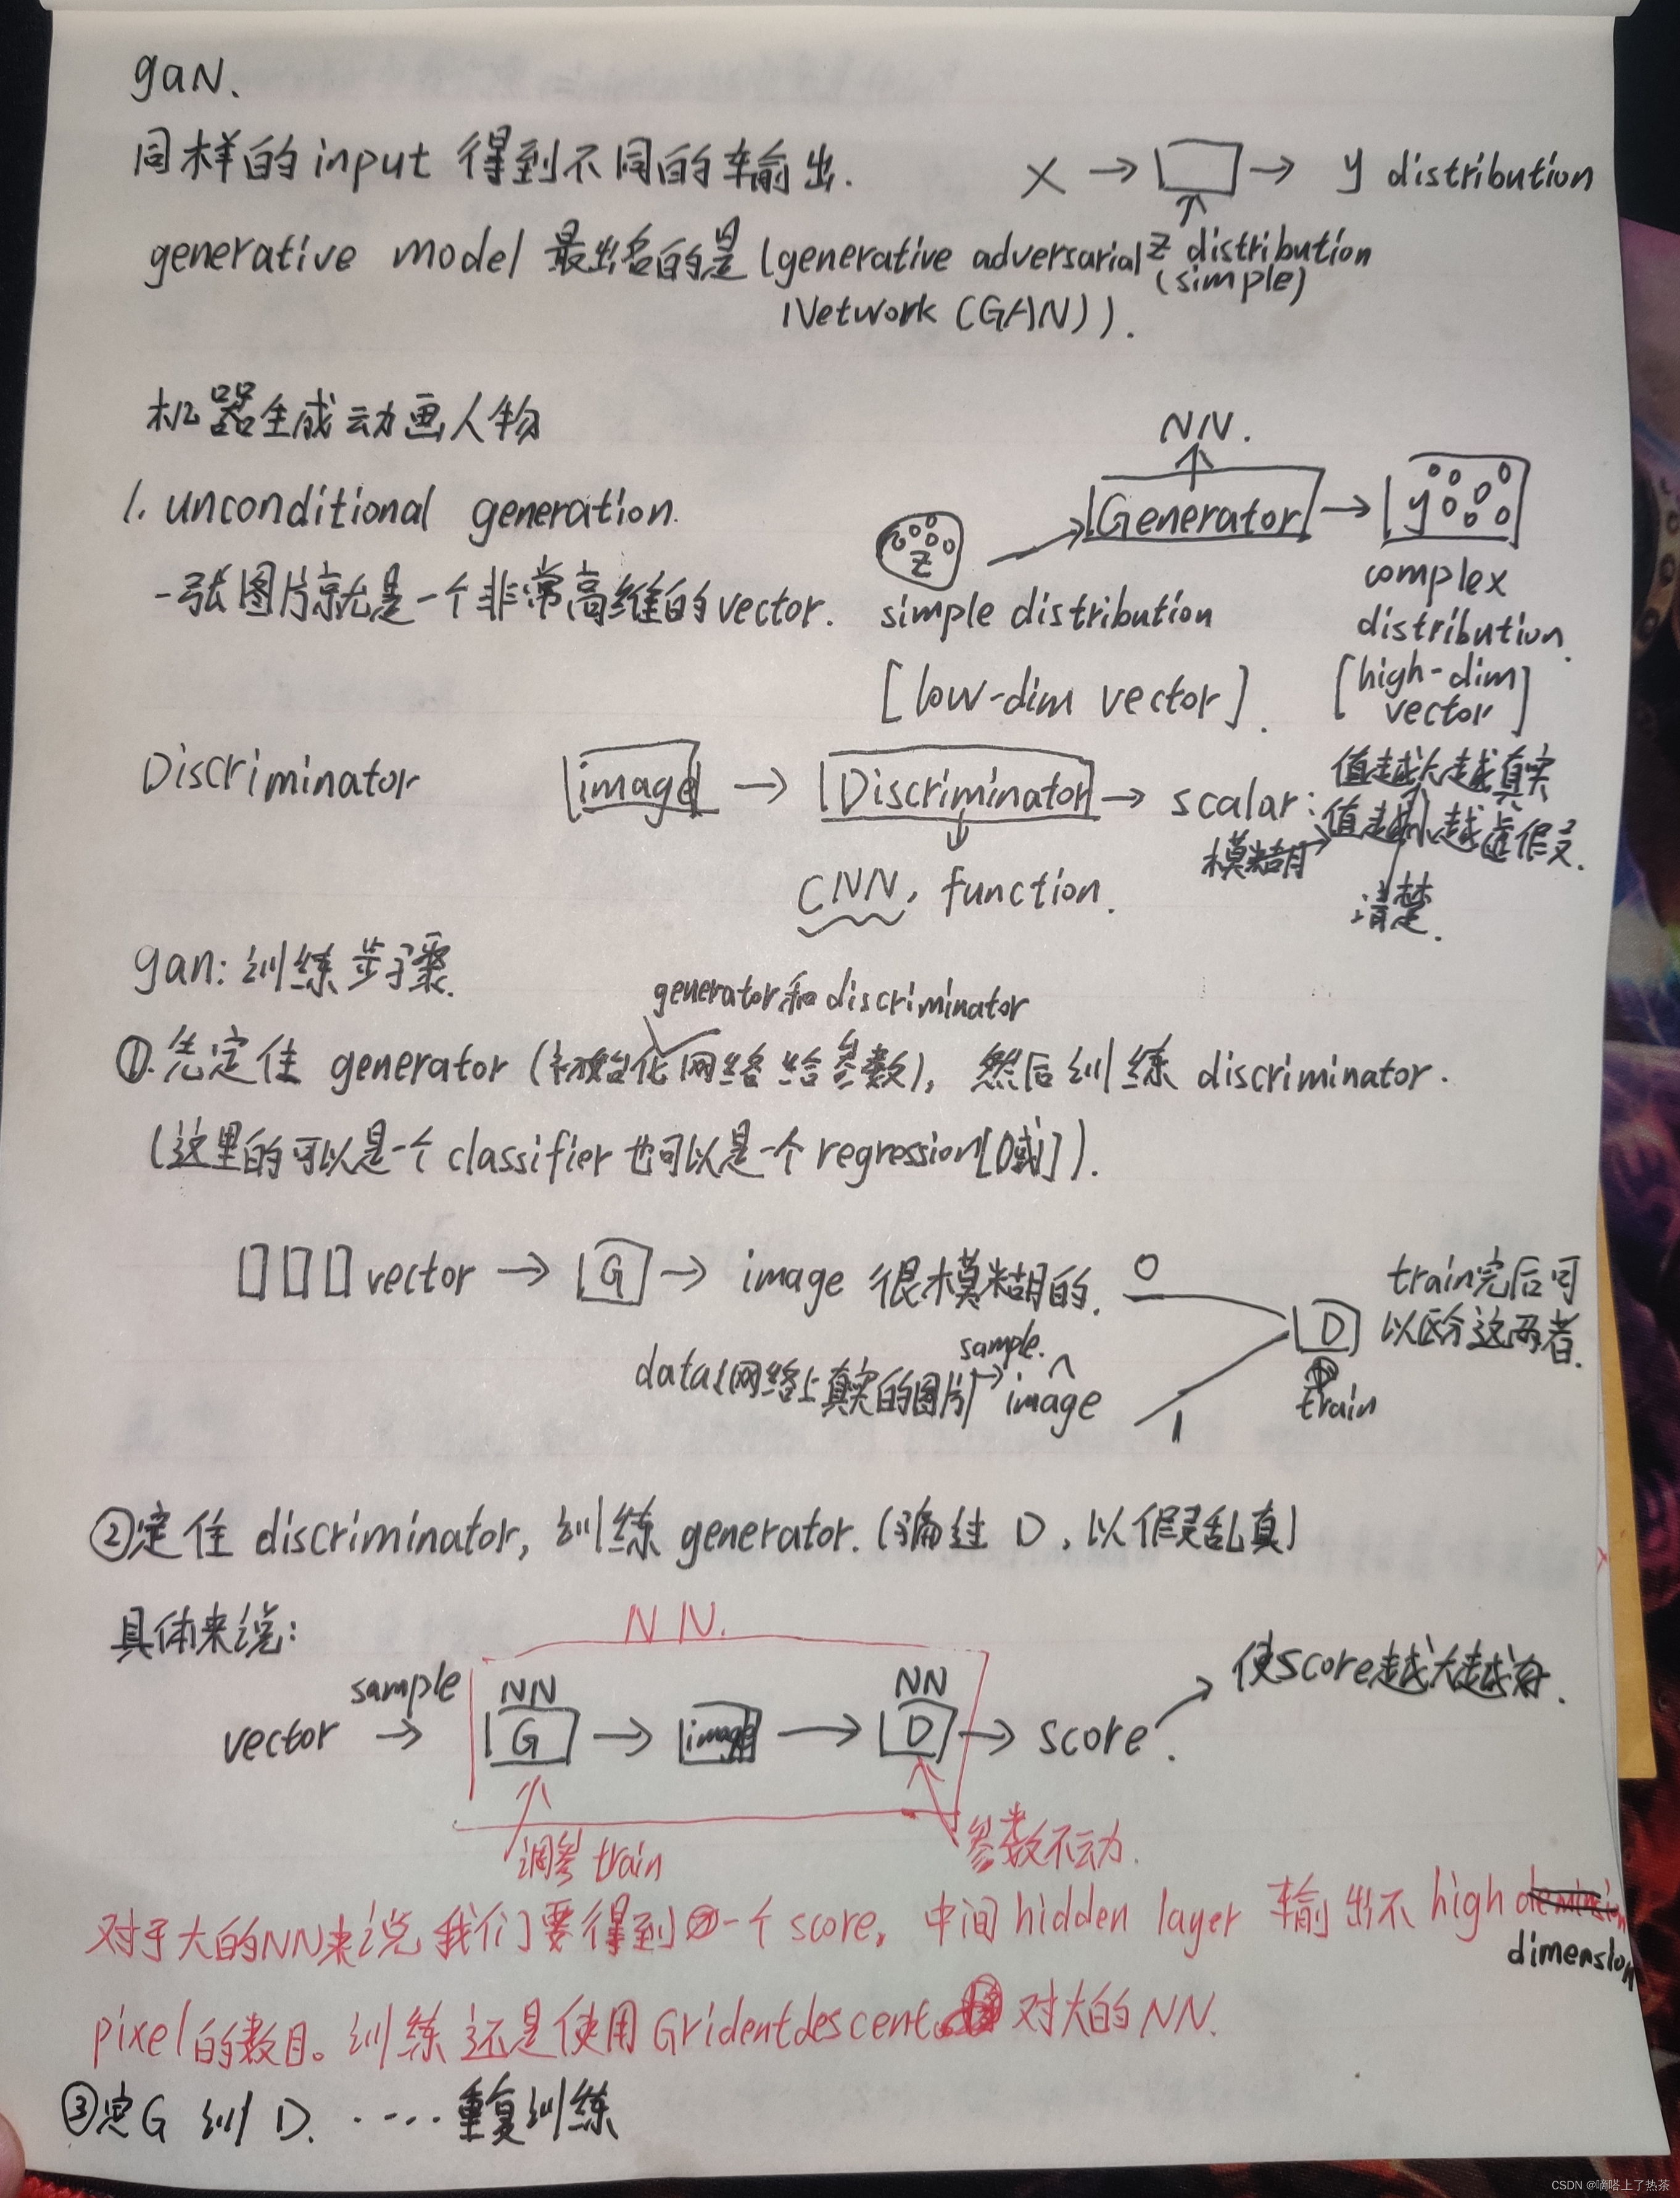 gaN.
同样的input 得到不同的输出. X → → y distribution
generative model 最出名的是(generative adversarial z distribution
(simple)
Network (GAN)).
机器生成动画人物
NN.
1. unconditional generation. z Generator → y
一张图片就是一个非常高维的vector. simple distribution complex
distribution.
[low-dim vector]. [high-dim
vector]
Discriminator image → Discriminator → scalar: 值越大越真实
值越小越虚假.
模糊→
清楚.
CNN, function.
gan: 训练步骤.
generator和discriminator
①.先定住 generator (初始化网络给参数), 然后训练 discriminator.
(这里的可以是一个 classifier 也可以是一个 regression[0或1]).
vector → G → image 很模糊的. 0 D train完后可
以区分这两者.
sample.
data(网络上真实的图片)→ image 1 train
②定住 discriminator, 训练 generator. (骗过 D, 以假乱真)
具体来说:
NN.
sample NN NN 使score越大越好.
vector → G → image → D → score.
调参 train 参数不动.
对于大的NN来说 我们要得到一个 score, 中间 hidden layer 输出不 high
dimension
pixel的数目。训练还是使用 Gridentdescent. 对大的 NN.
③定G 训 D. ····重复训练
CSDN @嘀嗒上了热茶